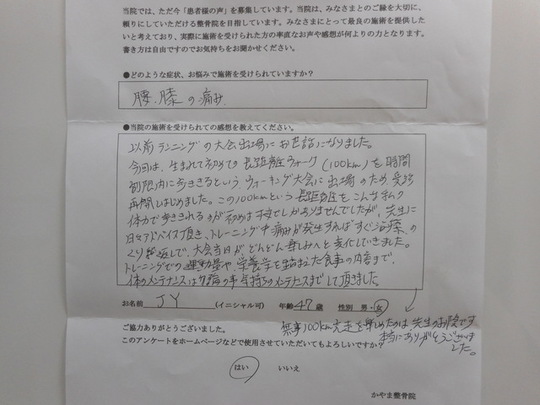 当院では、ただ今「患者様の声」を募集しています。当院は、みなさまとのご縁を大切に、
頼りにしていただける整骨院を目指しています。みなさまにとって最良の施術を提供した
いと考えており、実際に施術を受けられた方の率直なお声や感想が何よりの力となります。
書き方は自由ですのでお気持ちをお聞かせください。
●どのような症状、お悩みで施術を受けられていますか?
腰・膝の痛み
●当院の施術を受けられての感想を教えてください。
以前ランニングの大会出場にお世話になりました。
今回は、生まれて初めての長距離ウォーク(100km)を時間
制限内に歩ききるという、ウォーキング大会に出場のため、受診
再開しはじめました。この100kmという長距離をこんな私の
体力で歩ききれるのか初めは不安でしかありませんでしたが、先生に
日々アドバイス頂き、トレーニング中痛みが発生すればすぐ治療、の
くり返しで、大会当日がどんどん楽しみへと変化していきました。
トレーニングでの運動量や、栄養学を踏まえた食事の内容まで、
体のメンテナンスは勿論の事、気持ちのメンテナンスまでして頂きました。
お名前 JY (イニシャル可) 年齢 47 歳 性別 男・女
無事100km完走を楽しめたのは先生のお陰です
本当にありがとうございま
した。
ご協力ありがとうございました。
このアンケートをホームページなどで使用させていただいてもよろしいですか?
はい いいえ
かやま整骨院